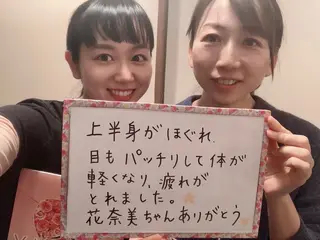 上半身がほぐれ、
目もパッチリして体が
軽くなり、疲れが
とれました。
花奈美ちゃんありがとう